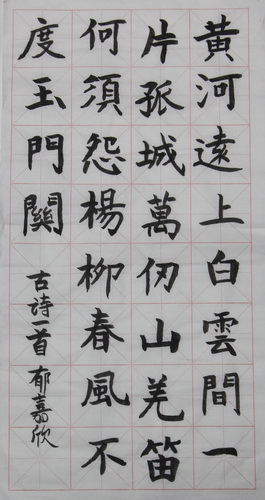 黃河遠上白雲間一
片孤城萬仞山羌笛
何須怨楊柳春風不
度玉門關
古詩一首 郁嘉欣